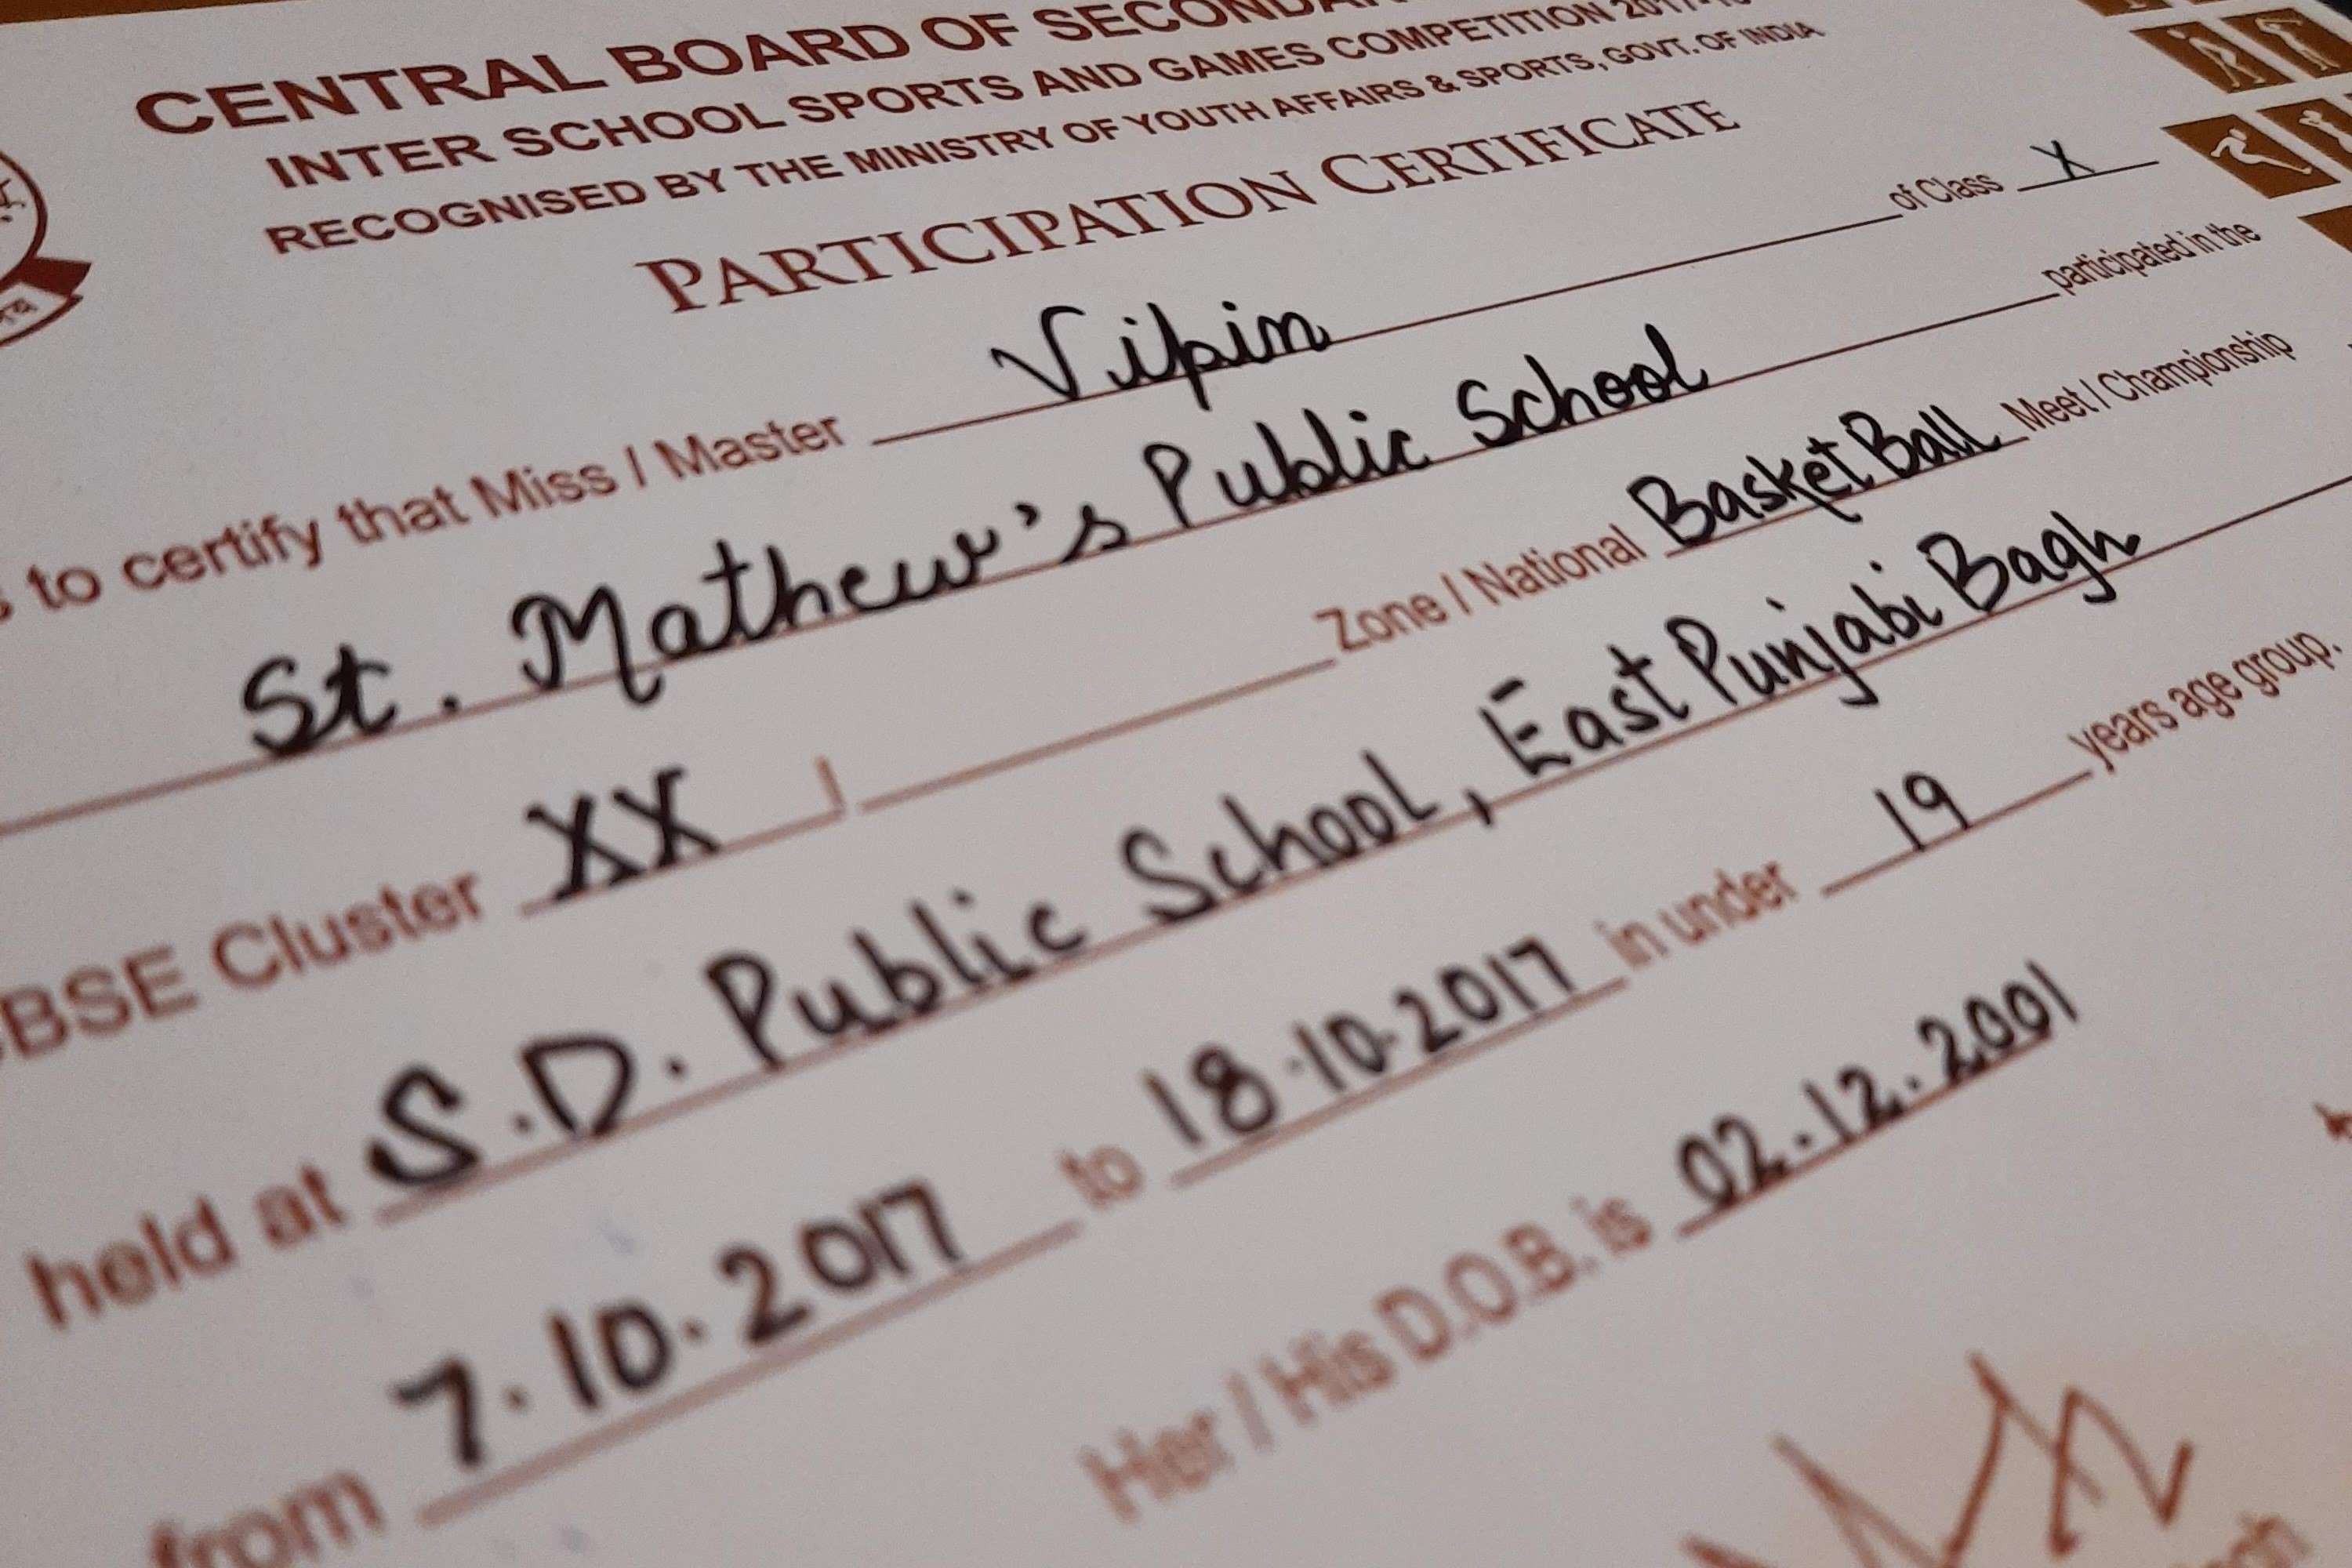 CENTRAL BOARD OF
INTER SCHOOL SPORTS AND GAMES COMPETITION
RECOGNISED BY THE MINISTRY OF YOUTH AFFAIRS & SPORTS, GOVT. OF INDIA
PARTICIPATION CERTIFICATE
to certify that Miss / Master Vipin of Class X
St. Mathew's Public School participated in the
BSE Cluster XX / Zone / National Basket Ball Meet / Championship
held at S.D. Public School, East Punjabi Bagh
from 7.10.2017 to 18.10.2017 in under 19 years age group.
Her / His D.O.B. is 02.12.2001